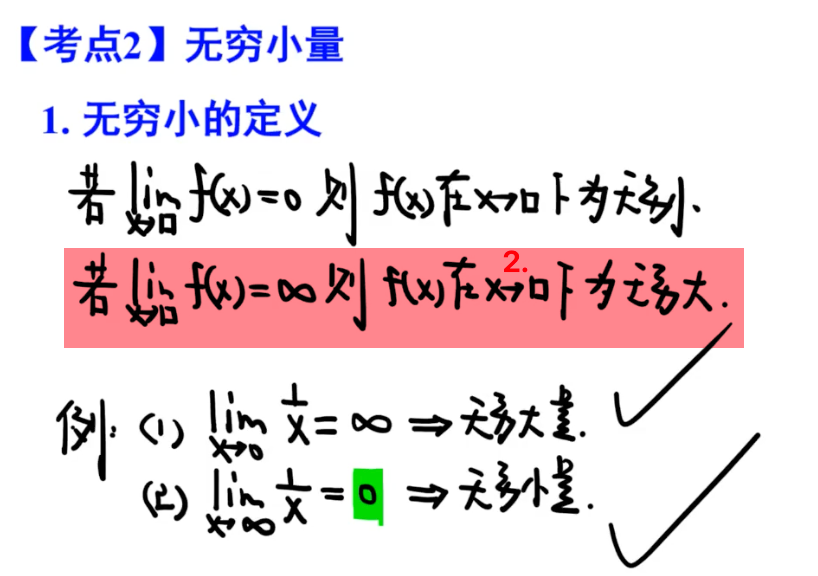 【考点2】无穷小量
1. 无穷小的定义
若 lim x→□ f(x)=0 则 f(x)在x→□下为无穷小.
2.
若 lim x→□ f(x)=∞ 则 f(x)在x→□下为无穷大.
例: (1) lim x→0 1/x = ∞ ⇒ 无穷大量.
(2) lim x→∞ 1/x = 0 ⇒ 无穷小量.